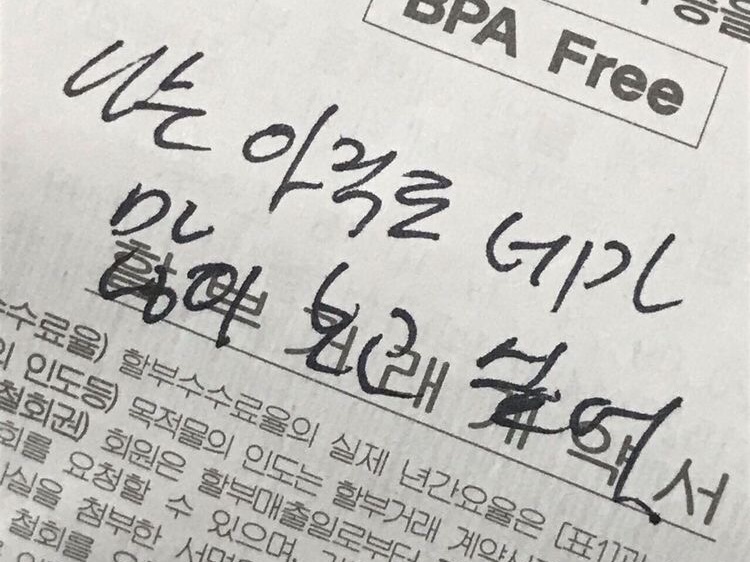 BPA Free
나는 아직도 네가
많이
할부거래계약서
수수료율) 할부수수료율의 실제 년간요율은 [表1]과
의 인도등) 목적물의 인도는 할부거래 계약서
철회권) 회원은 할부매출일로부터
회를 요청할 수 있으며,
사실을 첨부한
철회를